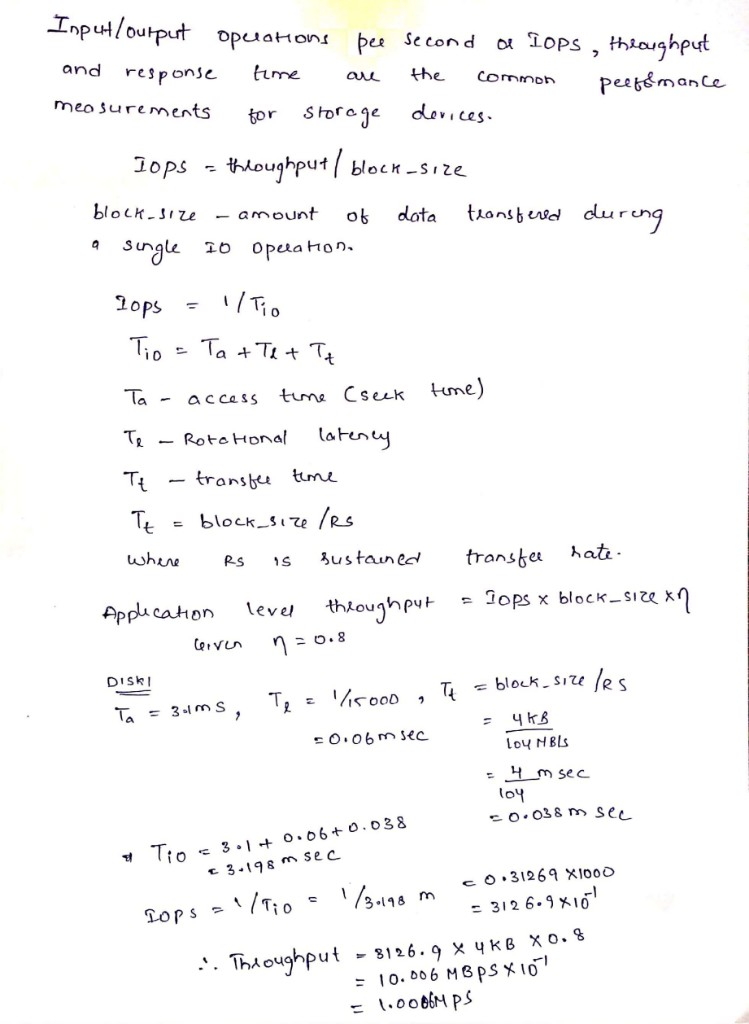 Input/output operations per second or IOPS, throughput
and response time are the common performance
measurements for storage devices.
IOPS = throughput / block_size
block_size - amount of data transfered during
a single IO operation.
IOPS = 1/Tio
Tio = Ta + Tl + Tt
Ta - access time (seek time)
Tl - Rotational latency
Tt - transfer time
Tt = block_size /RS
where RS is sustained transfer rate.
Application level throughput = IOPS x block_size x η
Given η = 0.8
DISK1
Ta = 3.1ms, Tl = 1/15000, Tt = block_size /RS
= 0.06 msec
= 4KB / 104 MB/s
= 4/104 msec
= 0.038 msec
Tio = 3.1 + 0.06 + 0.038
= 3.198 msec
IOPS = 1/Tio = 1/3.198 m = 0.31269 x1000
= 3126.9 x10⁻¹
∴ Throughput = 3126.9 x 4KB x 0.8
= 10.006 MBPS x 10⁻¹
= 1.0006MPS